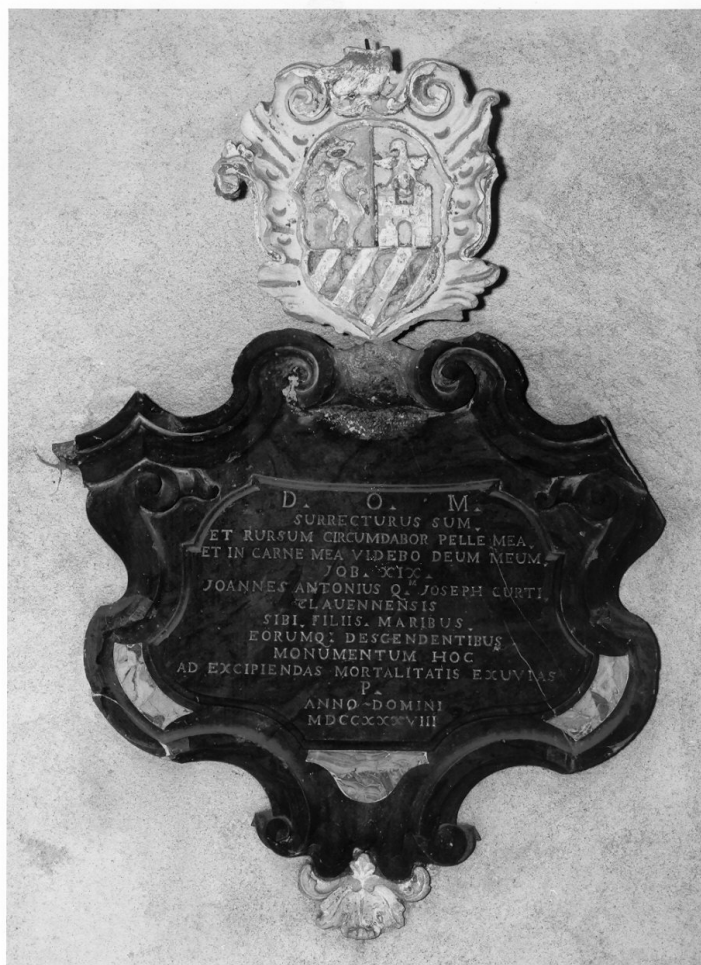 D. O. M.
SURRECTURUS SUM.
ET RURSUM CIRCUMDABOR PELLE MEA.
ET IN CARNE MEA VIDEBO DEUM MEUM.
JOB. XIX.
JOANNES ANTONIUS Q.M JOSEPH CURTI
CLAUENNENSIS
SIBI. FILIIS. MARIBUS.
EORUMQ: DESCENDENTIBUS
MONUMENTUM HOC
AD EXCIPIENDAS MORTALITATIS EXUVIAS
P.
ANNO DOMINI
MDCCXXXVIII